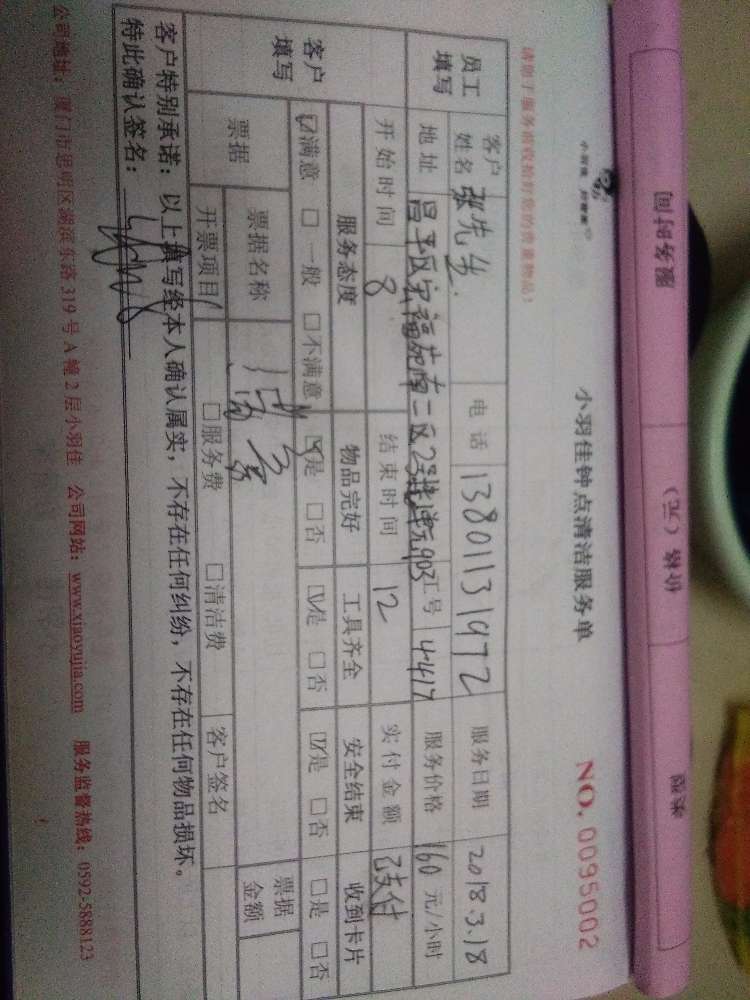 服务时间
价格（元）
来源
小羽佳 好管家
小羽佳钟点清洁服务单
NO.0095002
请您于服务前收拾好您的贵重物品！
员工填写
客户姓名 张先生 电话 13801131972 服务日期 2018.3.18
地址 昌平区宏福苑南二区23楼1单元903 工号 4417 服务价格 160 元/小时
开始时间 8 结束时间 12 实付金额 已支付
客户填写
服务态度 物品完好 工具齐全 安全结束 收到卡片
☑满意 □一般 □不满意 ☑是 □否 ☑是 □否 ☑是 □否 □是 □否
票据 票据名称 票据金额
开票项目 □服务费 □清洁费 客户签名
客户特别承诺：以上填写经本人确认属实，不存在任何纠纷，不存在任何物品损坏。
特此确认签名：
公司地址：厦门市思明区湖滨东路319号A幢2层小羽佳 公司网站：www.xiaoyujia.com 服务监督热线：0592-5888123